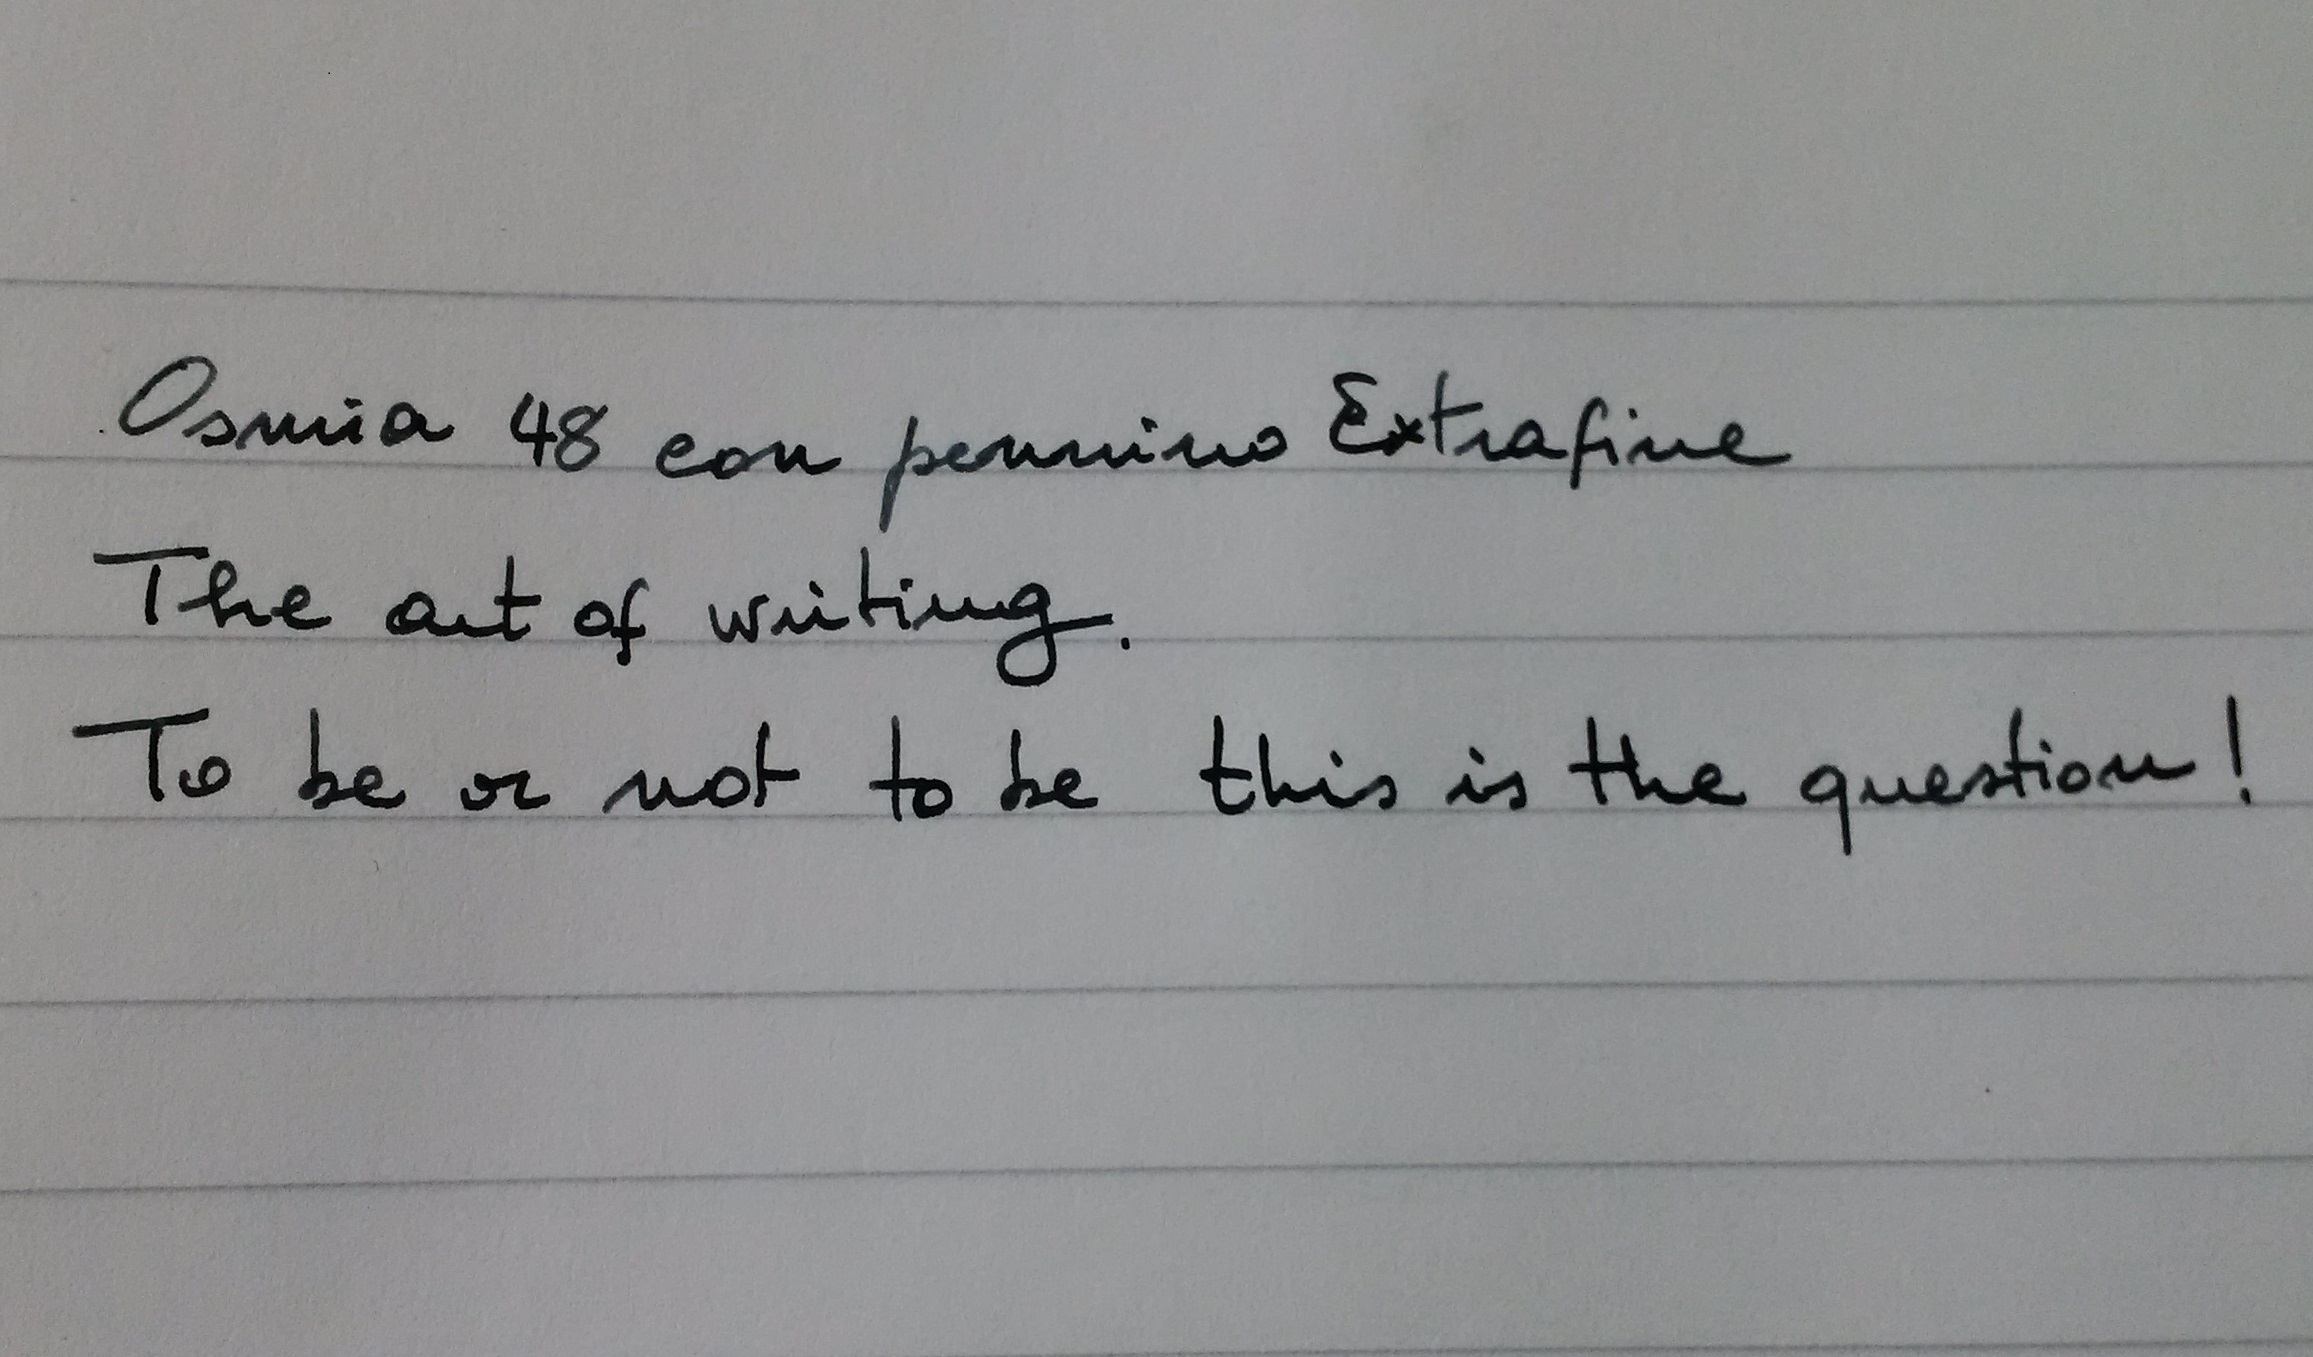 Osmia 48 con pennino Extrafine
The art of writing.
To be or not to be this is the question!